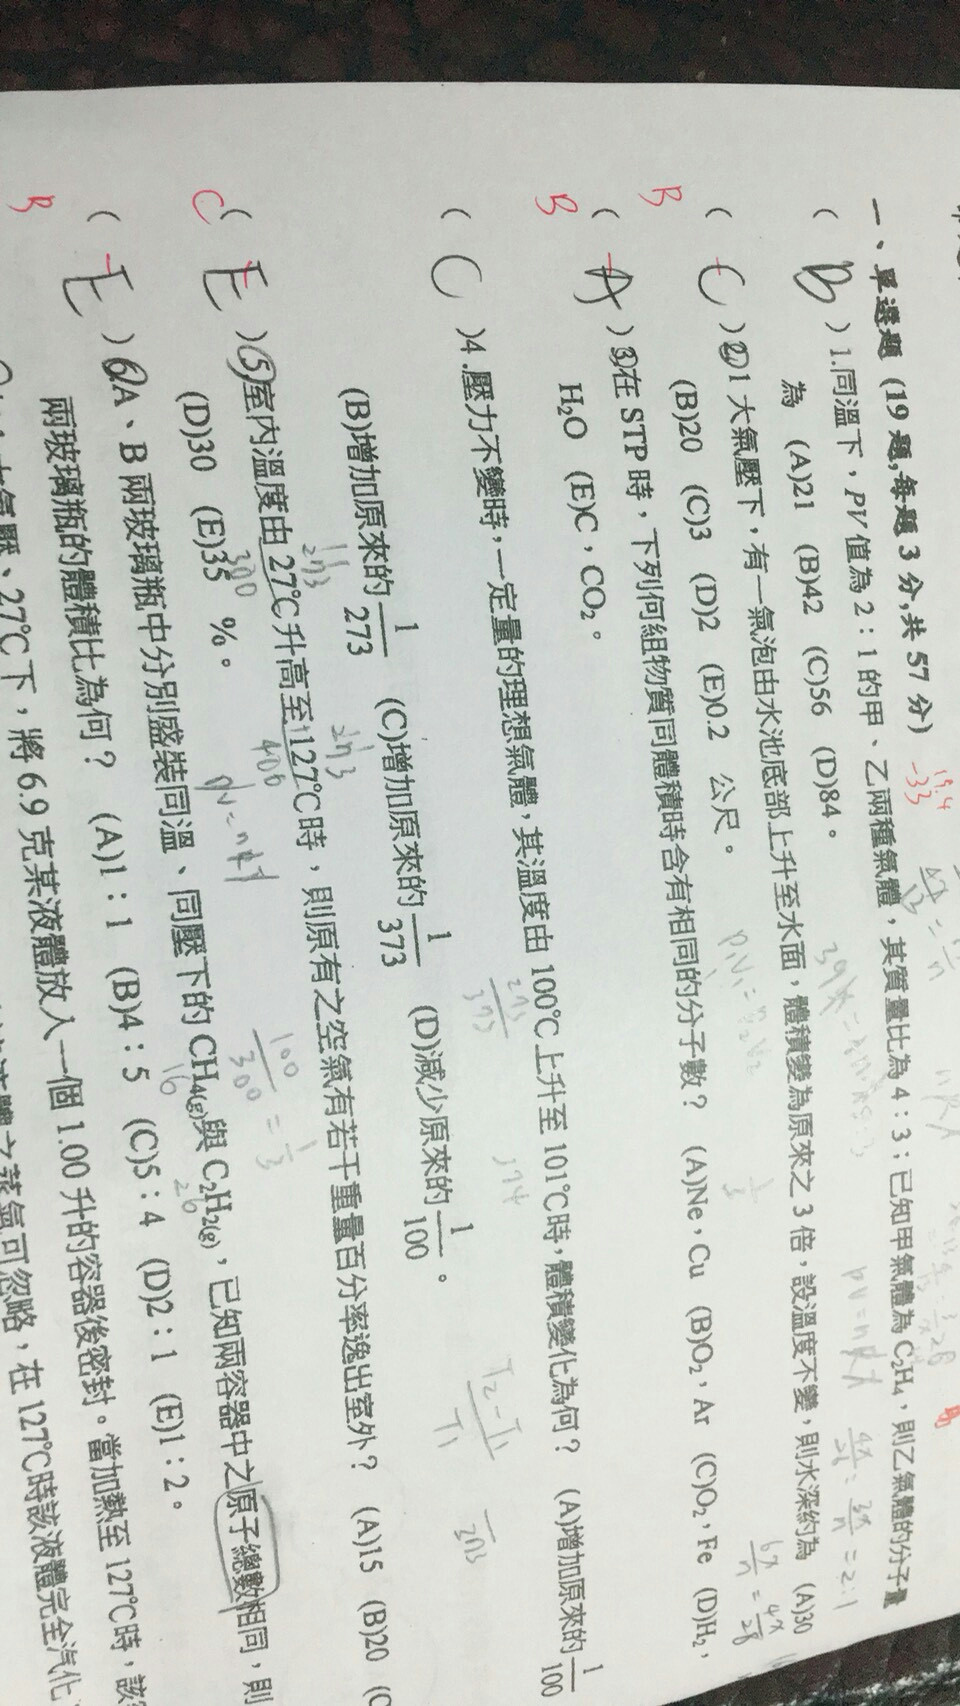 一、單選題 (19 題,每題 3 分,共 57 分) -33
( B ) 1.同溫下,PV 值為 2:1 的甲、乙兩種氣體,其質量比為 4:3;已知甲氣體為 C₂H₄,則乙氣體的分子量
為 (A)21 (B)42 (C)56 (D)84。
( C ) 2.1 大氣壓下,有一氣泡由水池底部上升至水面,體積變為原來之 3 倍,設溫度不變,則水深約為 (A)30
B
(B)20 (C)3 (D)2 (E)0.2 公尺。
( A ) 3.在 STP 時,下列何組物質同體積時含有相同的分子數? (A)Ne,Cu (B)O₂,Ar (C)O₂,Fe (D)H₂,
B
H₂O (E)C,CO₂。
( C ) 4.壓力不變時,一定量的理想氣體,其溫度由 100℃上升至 101℃時,體積變化為何? (A)增加原來的 1/100
273/373 374
(B)增加原來的 1/273 (C)增加原來的 1/373 (D)減少原來的 1/100。
T₂-T₁/T₁
273 273
( E ) 5.室內溫度由 27℃升高至 127℃時,則原有之空氣有若干重量百分率逸出室外? (A)15 (B)20 (C
C
300 400 100/300 = 1/3
(D)30 (E)35 %。
PV=nRT
( E ) 6.A、B 兩玻璃瓶中分別盛裝同溫、同壓下的 CH₄(g)與 C₂H₂(g),已知兩容器中之原子總數相同,則
B
16 26
兩玻璃瓶的體積比為何? (A)1:1 (B)4:5 (C)5:4 (D)2:1 (E)1:2。
27℃下,將 6.9 克某液體放入一個 1.00 升的容器後密封。當加熱至 127℃時,該
蒸氣可忽略,在 127℃時該液體完全汽化